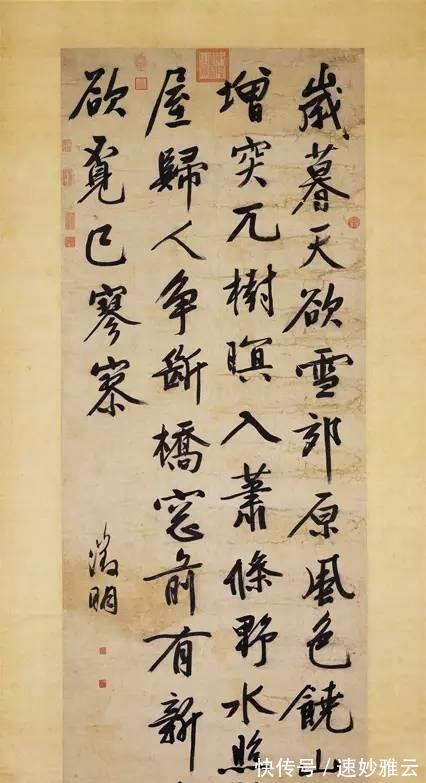 歲暮天欲雪郊原風色饒山
增突兀樹暝入蕭條野水照
屋歸人爭斷橋窓前有新
欲覓已寥寥
徵明
快传号/速妙雅云